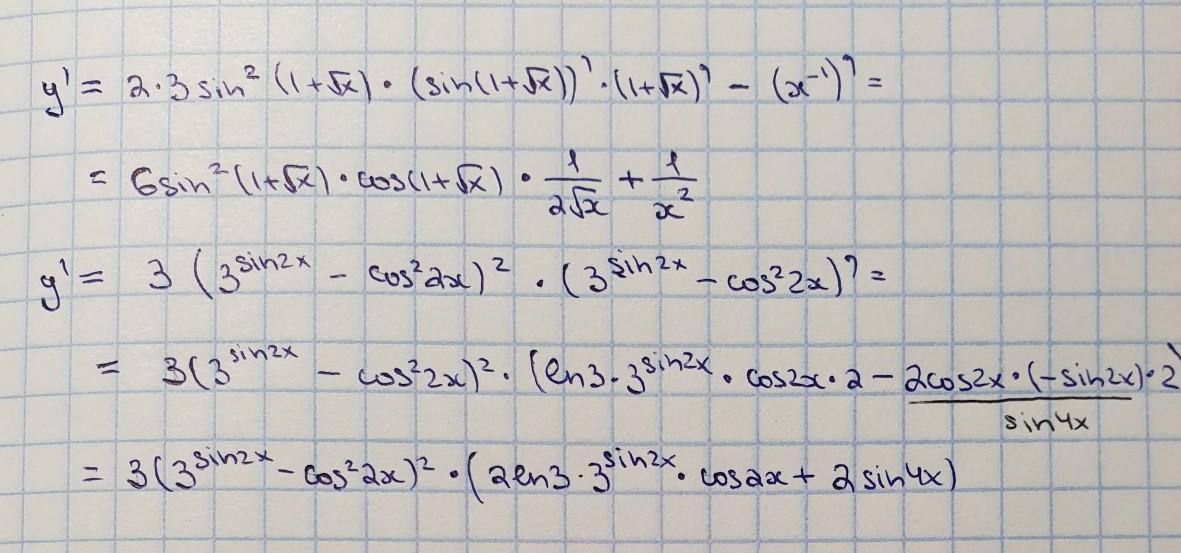 y' = 2·3 sin² (1+√x) · (sin(1+√x))' · (1+√x)' − (x⁻¹)' =
= 6sin²(1+√x) · cos(1+√x) · 1/(2√x) + 1/x²
y' = 3 (3^(sin2x) − cos²2x)² · (3^(sin2x) − cos²2x)' =
= 3(3^(sin2x) − cos²2x)² · (ln3 · 3^(sin2x) · cos2x · 2 − 2cos2x · (−sin2x) · 2)
sin4x
= 3(3^(sin2x) − cos²2x)² · (2ln3 · 3^(sin2x) · cos2x + 2sin4x)